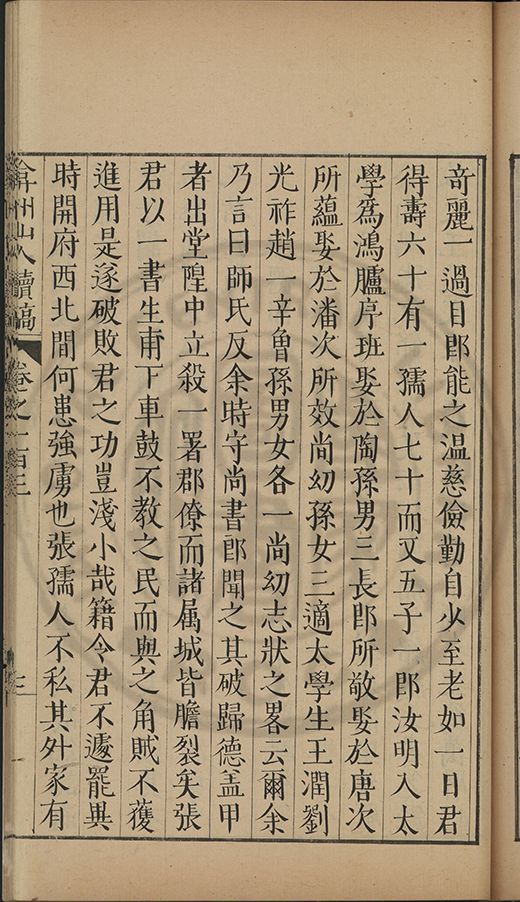 奇麗一過目卽能之温慈儉勤自少至老如一日君
得壽六十有一孺人七十而又五子一卽汝明入太
學爲鴻臚序班娶於陶孫男三長卽所敬娶於唐次
所蘊娶於潘次所效尚幼孫女三適太學生王潤劉
光祚趙一辛曾孫男女各一尚幼志狀之畧云爾余
乃言曰師氏反余時守尚書郎聞之其破歸德盖甲
者出堂隍中立殺一署郡僚而諸属城皆膽裂矣張
君以一書生甫下車鼓不教之民而與之角賊不獲
進用是遂破敗君之功豈淺小哉籍令君不遽罷異
時開府西北間何患強虜也張孺人不私其外家有
弇州山人續稿
卷之一百三
三